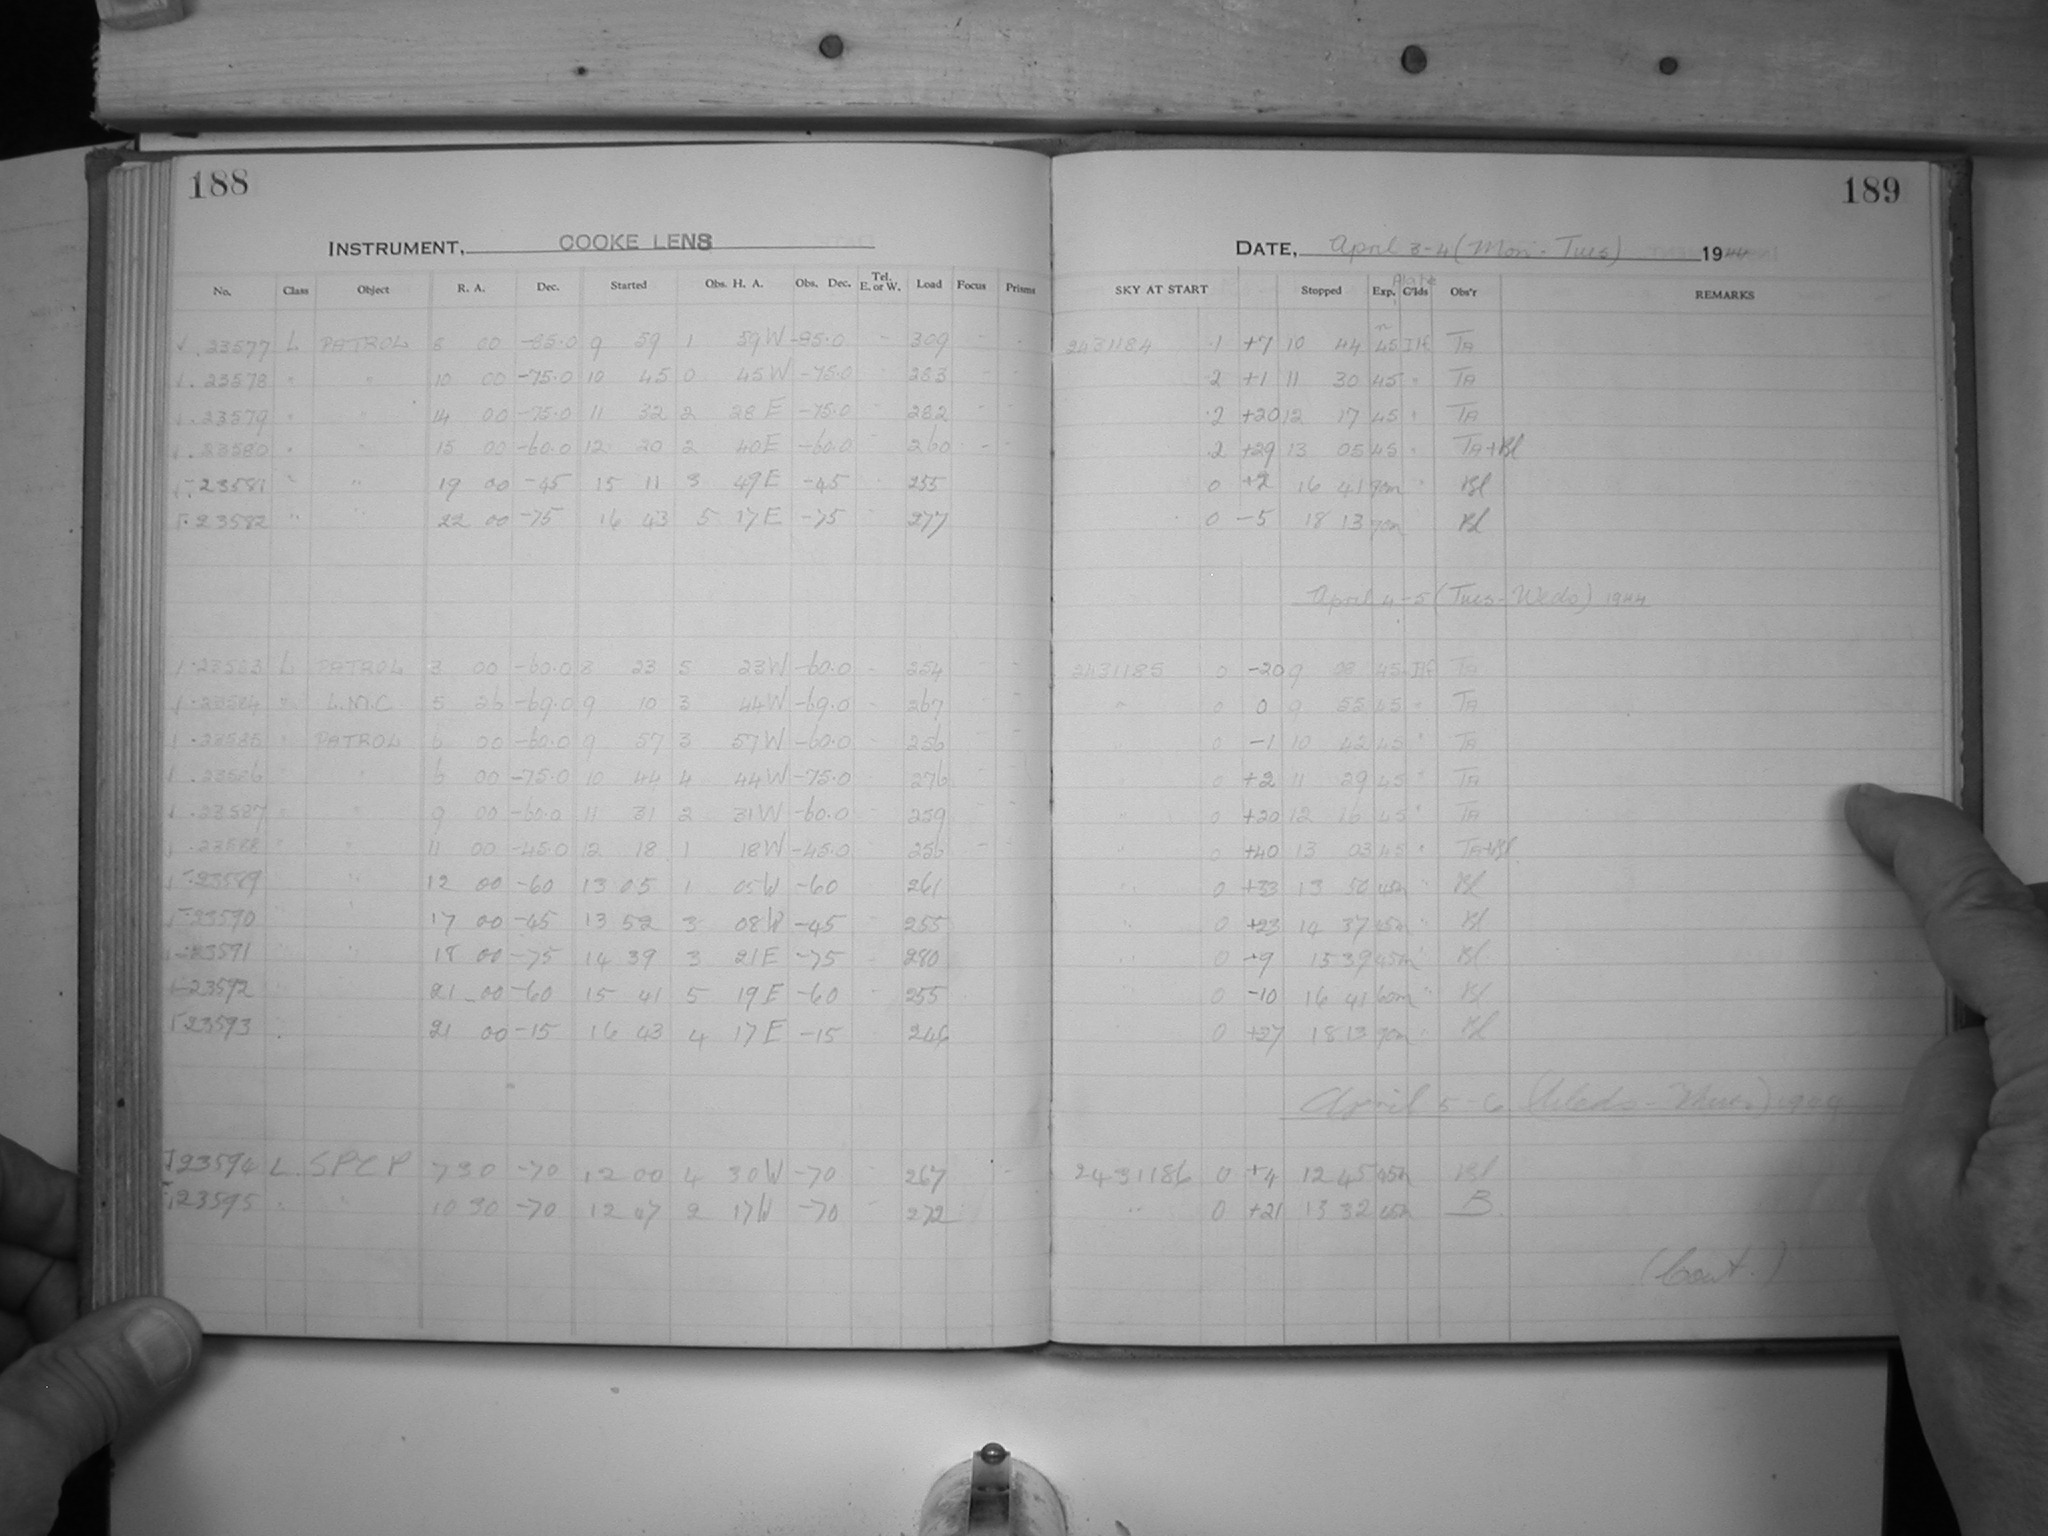 188
189
INSTRUMENT, COOKE LENS
DATE, April 3-4 (Mon - Tues) 1944
No. Class Object R. A. Dec. Started Obs. H. A. Obs. Dec. Tel. E. or W. Load Focus Prisms SKY AT START Stopped Exp. Plate G'lds Obs'r REMARKS
23577 L PATROL 8 00 -85.0 9 59 1 59 W -85.0 309 2431184 .1 +7 10 44 45 TA
23578 " " 10 00 -75.0 10 45 0 45 W -75.0 283 .2 +1 11 30 45 " TA
23579 " " 14 00 -75.0 11 32 2 28 E -75.0 282 .2 +20 12 17 45 " TA
23580 " " 15 00 -60.0 12 20 2 40 E -60.0 260 .2 +29 13 05 45 " TA+Bl
23581 " " 19 00 -45 15 11 3 49 E -45 255 0 +2 16 41 90m " Bl
23582 " " 22 00 -75 16 43 5 17 E -75 277 0 -5 18 13 90m Bl
April 4-5 (Tues-Weds) 1944
23583 L PATROL 3 00 -60.0 8 23 5 23 W -60.0 254 2431185 0 -20 9 08 45 TA
23584 " L.M.C 5 26 -69.0 9 10 3 44 W -69.0 267 " 0 0 9 55 45 " TA
23585 " PATROL 6 00 -60.0 9 57 3 57 W -60.0 256 " 0 -1 10 42 45 " TA
23586 " " 6 00 -75.0 10 44 4 44 W -75.0 276 " 0 +2 11 29 45 " TA
23587 " " 9 00 -60.0 11 31 2 31 W -60.0 259 " 0 +20 12 16 45 " TA
23588 " " 11 00 -45.0 12 18 1 18 W -45.0 256 " 0 +40 13 03 45 " TA+Bl
23589 " " 12 00 -60 13 05 1 05 W -60 261 " 0 +33 13 50 45m " Bl
23590 " " 17 00 -45 13 52 3 08 W -45 255 " 0 +23 14 37 45m " Bl
23591 " " 18 00 -75 14 39 3 21 E -75 280 " 0 +9 15 39 45m " Bl
23592 " " 21 00 -60 15 41 5 19 E -60 255 " 0 -10 16 41 60m " Bl
23593 " 21 00 -15 16 43 4 17 E -15 246 " 0 +27 18 13 90m " Bl
April 5-6 (Weds-Thurs) 1944
23594 L SPCP 7 30 -70 12 00 4 30 W -70 267 2431186 0 +4 12 45 45m Bl
23595 " " 10 30 -70 12 47 2 17 W -70 272 " 0 +21 13 32 45m B
(Cont.)